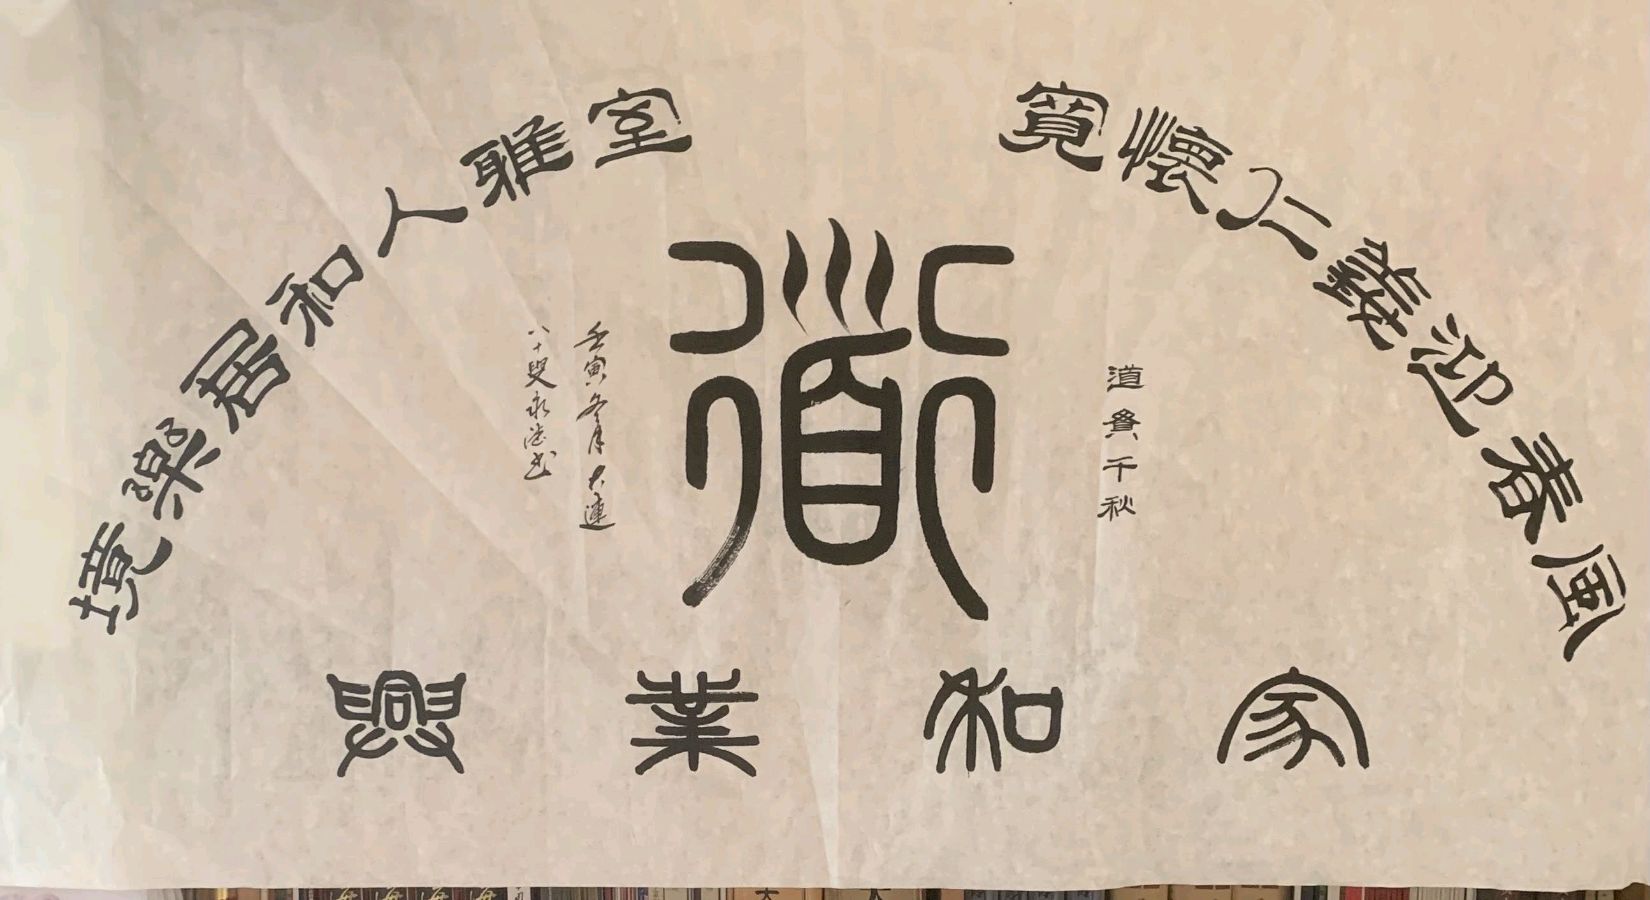 寬懷仁義迎春風
室雅人和居樂境
道貫千秋
道
壬寅冬月大連
八十叟永书
家和業興